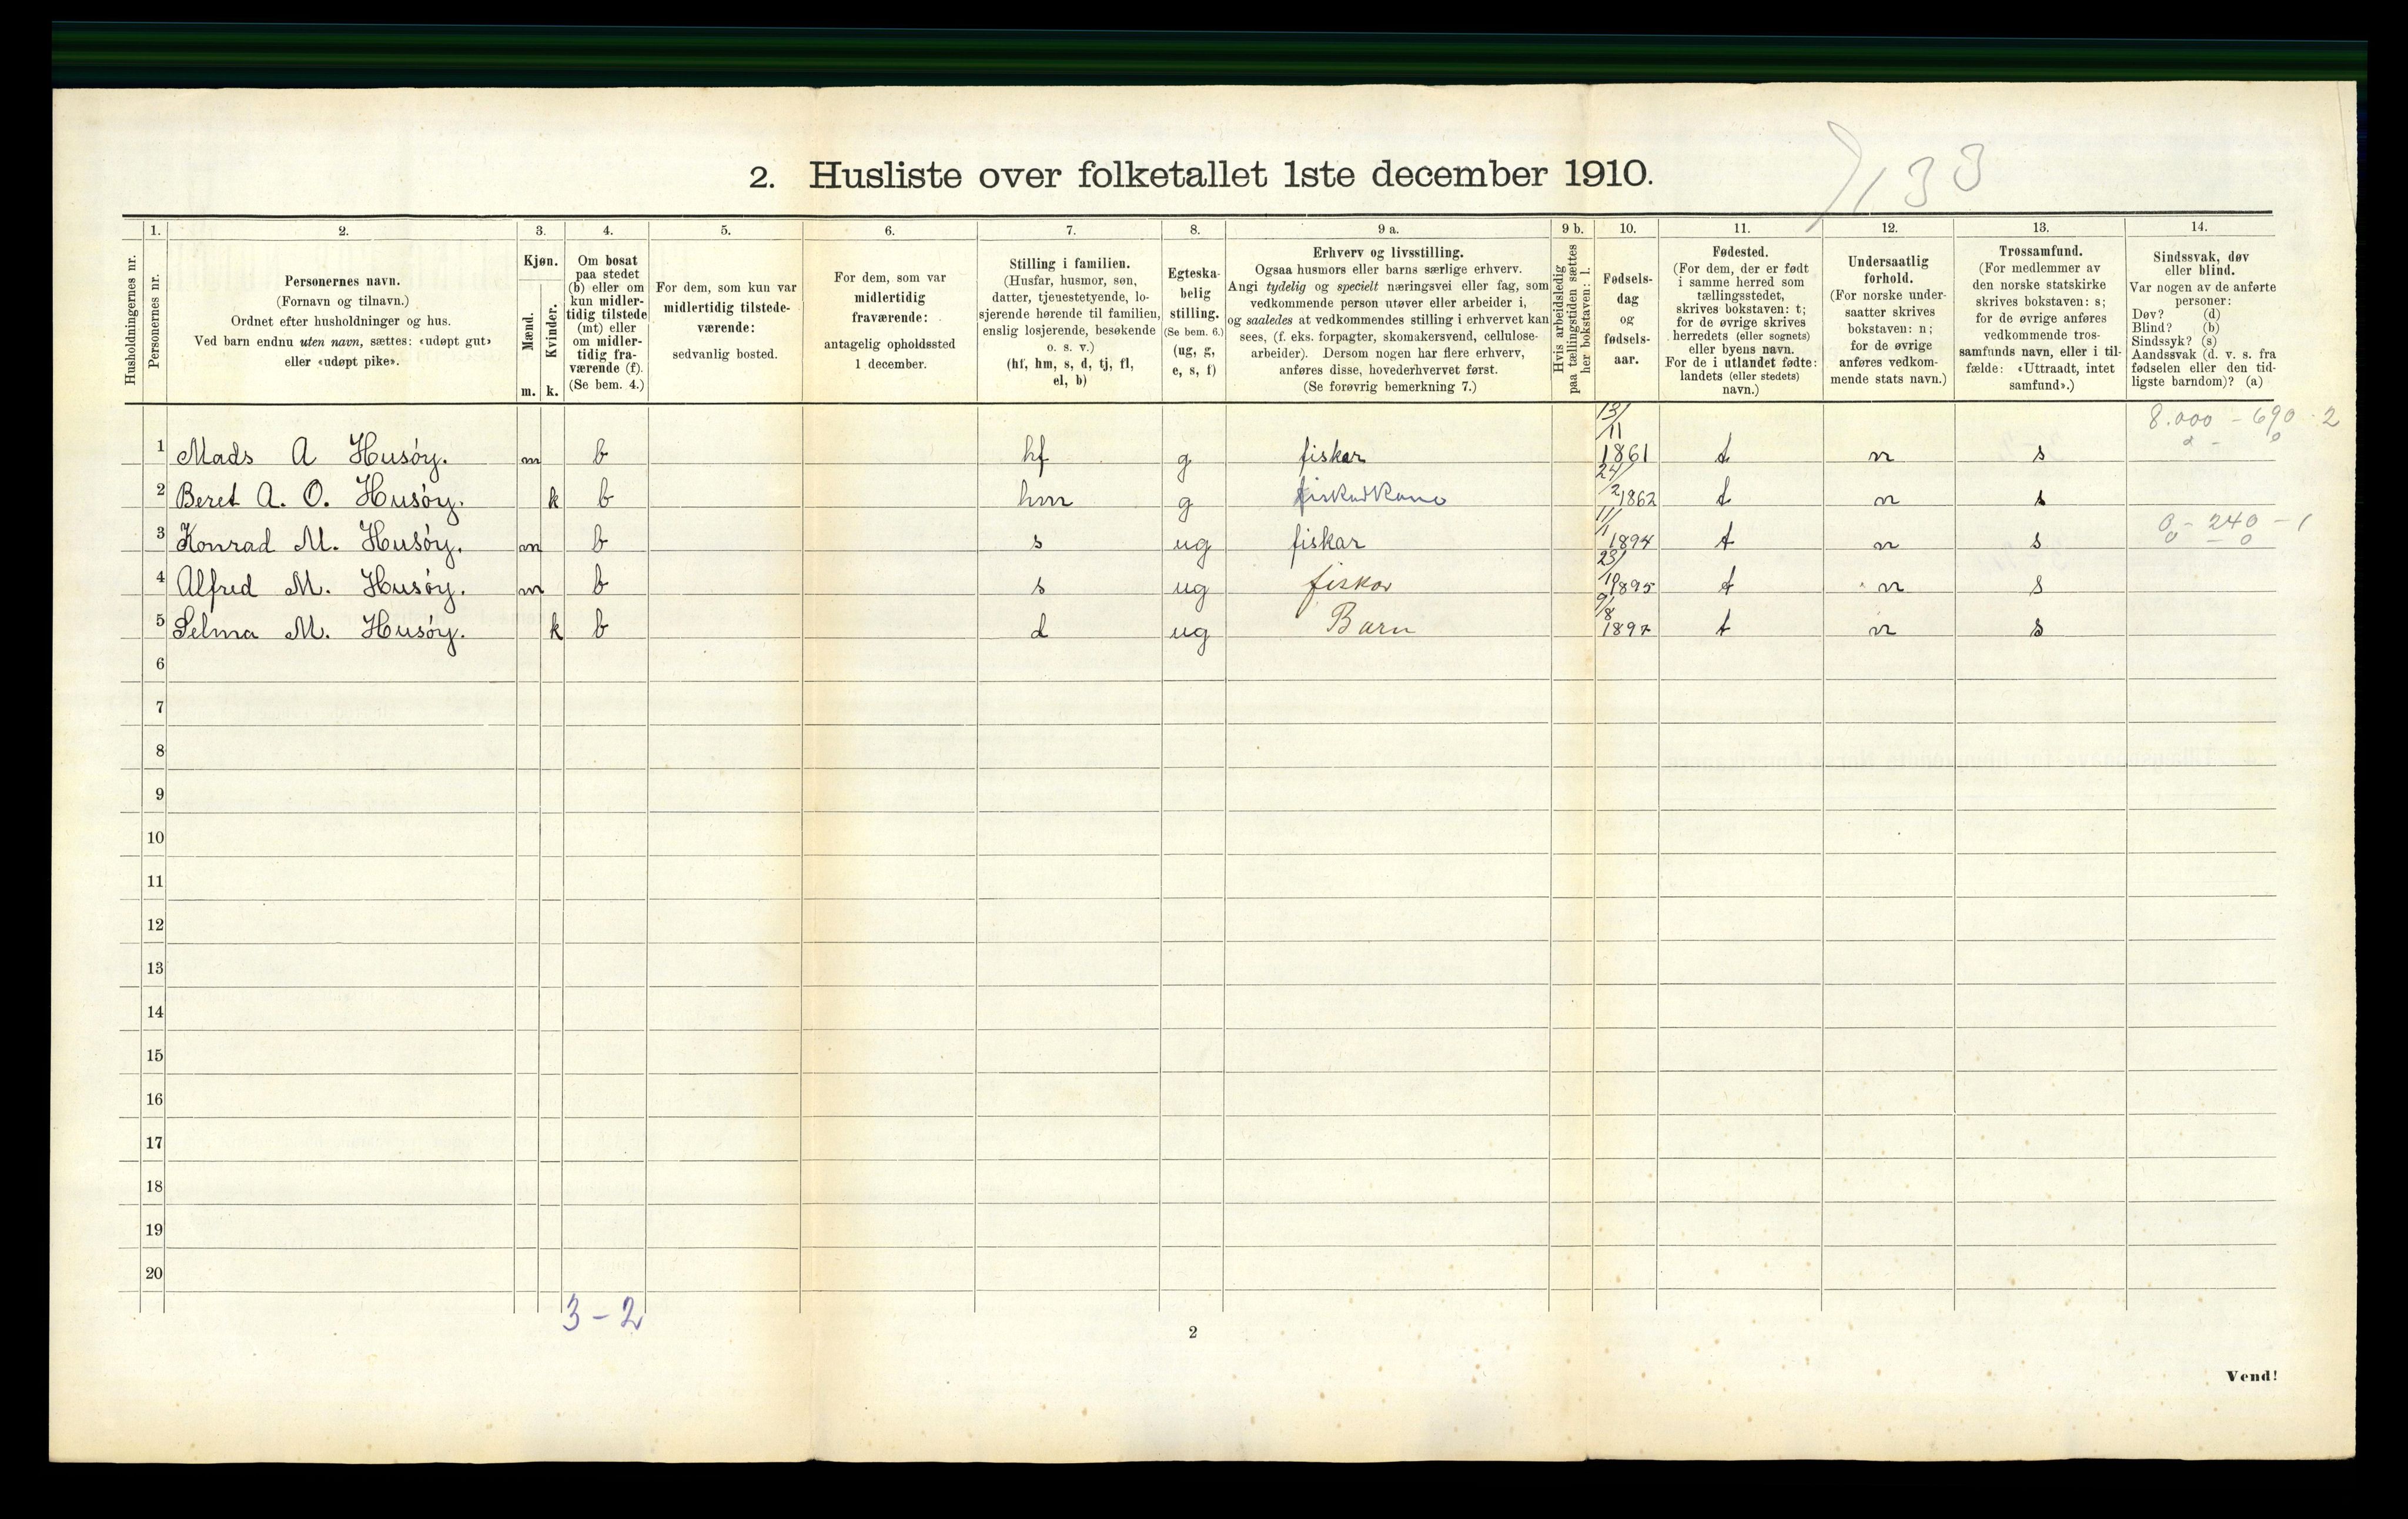 2. Husliste over folketallet 1ste december 1910.
133
Husholdningernes nr.
1. Personernes nr.
2. Personernes navn.
(Fornavn og tilnavn.)
Ordnet efter husholdninger og hus.
Ved barn endnu uten navn, sættes: «udøpt gut»
eller «udøpt pike».
3. Kjøn.
Mænd. m.
Kvinder. k.
4. Om bosat
paa stedet
(b) eller om
kun midler-
tidig tilstede
(mt) eller
om midler-
tidig fra-
værende (f).
(Se bem. 4.)
5. For dem, som kun var
midlertidig tilstede-
værende:
sedvanlig bosted.
6. For dem, som var
midlertidig
fraværende:
antagelig opholdssted
1 december.
7. Stilling i familien.
(Husfar, husmor, søn,
datter, tjenestetyende, lo-
sjerende hørende til familien,
enslig losjerende, besøkende
o. s. v.)
(hf, hm, s, d, tj, fl,
el, b)
8. Egteska-
belig
stilling.
(Se bem. 6.)
(ug, g,
e, s, f)
9 a. Erhverv og livsstilling.
Ogsaa husmors eller barns særlige erhverv.
Angi tydelig og specielt næringsvei eller fag, som
vedkommende person utøver eller arbeider i,
og saaledes at vedkommendes stilling i erhvervet kan
sees, (f. eks. forpagter, skomakersvend, cellulose-
arbeider). Dersom nogen har flere erhverv,
anføres disse, hovederhvervet først.
(Se forøvrig bemerkning 7.)
9 b. Hvis arbeidsledig
paa tællingstiden sættes
her bokstaven: l.
10. Fødsels-
dag
og
fødsels-
aar.
11. Fødested.
(For dem, der er født
i samme herred som
tællingsstedet,
skrives bokstaven: t;
for de øvrige skrives
herredets (eller sognets)
eller byens navn.
For de i utlandet fødte:
landets (eller stedets)
navn.)
12. Undersaatlig
forhold.
(For norske under-
saatter skrives
bokstaven: n;
for de øvrige
anføres vedkom-
mende stats navn.)
13. Trossamfund.
(For medlemmer av
den norske statskirke
skrives bokstaven: s;
for de øvrige anføres
vedkommende tros-
samfunds navn, eller i til-
fælde: «Uttraadt, intet
samfund».)
14. Sindssvak, døv
eller blind.
Var nogen av de anførte
personer:
Døv? (d)
Blind? (b)
Sindssyk? (s)
Aandssvak (d. v. s. fra
fødselen eller den tid-
ligste barndom)? (a)
8.000 - 690 - 2
1 Mads A Husöy. m b hf g fiskar 13/11 1861 t n s
2 Beret A. O. Husöy. k b hm g fiskarkone 24/2 1862 t n s
0 - 240 - 1
3 Konrad M. Husöy. m b s ug fiskar 11/1 1894 t n s
4 Alfred M. Husöy. m b s ug fisker 23/10 1895 t n s
5 Selma M. Husöy. k b d ug Barn 9/8 1897 t n s
6
7
8
9
10
11
12
13
14
15
16
17
18
19
20
3-2
2
Vend!